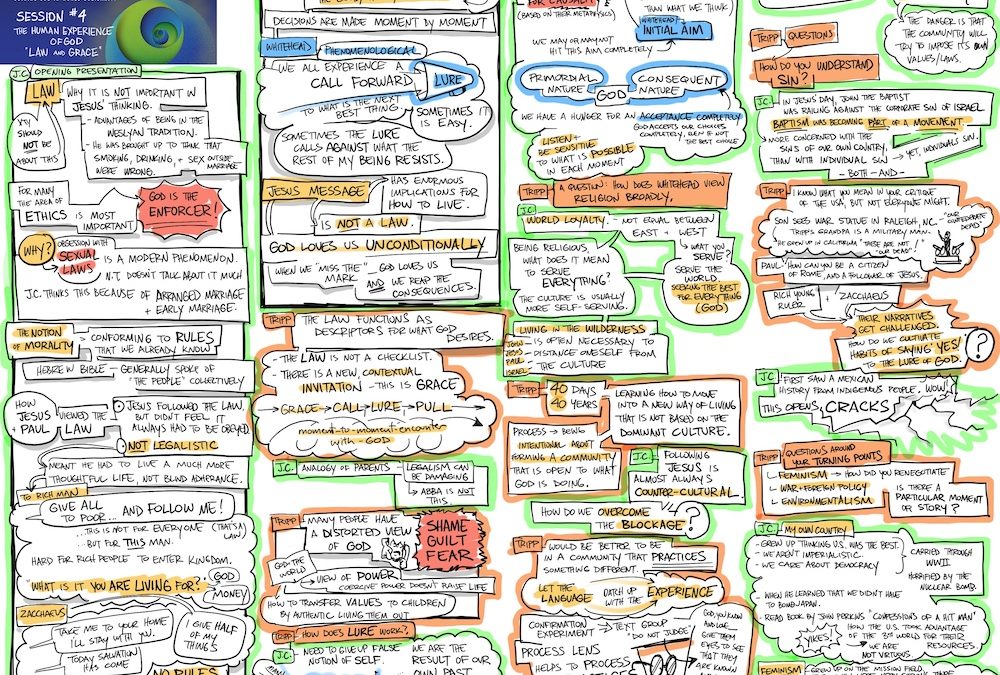 SESSION #4
THE HUMAN EXPERIENCE
OF GOD
"LAW AND GRACE"
J.C. OPENING PRESENTATION
LAW
WHY IT IS NOT IMPORTANT IN
JESUS' THINKING.
- ADVANTAGES OF BEING IN THE
WESLYAN TRADITION.
- HE WAS BROUGHT UP TO THINK THAT
SMOKING, DRINKING, + SEX OUTSIDE MARRIAGE
WERE WRONG.
SHOULD
NOT BE
ABOUT THIS
FOR MANY
THE AREA OF
ETHICS IS MOST
IMPORTANT
GOD IS THE
ENFORCER!
WHY?
OBSESSION WITH
SEXUAL
LAWS
IS A MODERN PHENOMENON.
N.T. DOESN'T TALK ABOUT IT MUCH
J.C. THINKS THIS BECAUSE OF ARRANGED MARRIAGE
+ EARLY MARRIAGE.
THE NOTION
OF MORALITY
CONFORMING TO RULES
THAT WE ALREADY KNOW
HEBREW BIBLE - GENERALLY SPOKE OF
"THE PEOPLE" COLLECTIVELY
HOW
JESUS
+ PAUL
VIEWED THE
LAW
JESUS FOLLOWED THE LAW,
BUT DIDN'T FEEL IT
ALWAYS HAD TO BE OBEYED.
NOT LEGALISTIC
MEANT HE HAD TO LIVE A MUCH MORE
THOUGHTFUL LIFE, NOT BLIND ADHERANCE.
TO RICH MAN
GIVE ALL
TO POOR... AND FOLLOW ME!
...THIS IS NOT FOR EVERYONE (THAT'S A LAW)
...BUT FOR THIS MAN.
HARD FOR RICH PEOPLE TO ENTER KINGDOM.
"WHAT IS IT YOU ARE LIVING FOR?"
GOD
MONEY
ZACCHAEUS
TAKE ME TO YOUR HOME
I'LL STAY WITH YOU.
I GIVE HALF
OF MY
THINGS
TODAY SALVATION
HAS COME
NO RULES
DECISIONS ARE MADE MOMENT BY MOMENT
WHITEHEAD PHENOMENOLOGICAL
WE ALL EXPERIENCE A
CALL FORWARD
LURE
TO WHAT IS THE NEXT
BEST THING.
SOMETIMES IT
IS EASY.
SOMETIMES THE LURE
CALLS AGAINST WHAT THE
REST OF MY BEING RESISTS.
JESUS MESSAGE
HAS ENORMOUS
IMPLICATIONS FOR
HOW TO LIVE.
IS NOT A LAW.
GOD LOVES US UNCONDITIONALLY
WHEN WE "MISS THE MARK" GOD LOVES US
AND WE REAP THE
CONSEQUENCES.
TRIPP THE LAW FUNCTIONS AS
DESCRIPTORS FOR WHAT GOD
DESIRES.
- THE LAW IS NOT A CHECKLIST.
- THERE IS A NEW, CONTEXTUAL
INVITATION - THIS IS GRACE
GRACE → CALL → LURE → PULL
MOMENT-TO-MOMENT-ENCOUNTER
WITH - GOD
J.C. ANALOGY OF PARENTS - LEGALISM CAN
BE DAMAGING
→ ABBA IS NOT
THIS
TRIPP MANY PEOPLE HAVE
A DISTORTED VIEW
OF GOD
SHAME
GUILT
FEAR
GOD + THE
WORLD
VIEW OF POWER
COERCIVE POWER DOESN'T "RAISE" LIFE
HOW TO TRANSFER VALUES TO CHILDREN
BY AUTHENTIC LIVING THEM OUT
TRIPP HOW DOES LURE WORK?
J.C. - NEED TO GIVE UP FALSE
NOTION OF SELF.
WE ARE THE
RESULT OF OUR
OWN PAST
FOR CAUSALITY
(BASED ON THEIR METAPHYSICS)
THAN WHAT WE THINK
WHITEHEAD
INITIAL AIM
WE MAY OR MAY NOT
HIT THIS AIM COMPLETELY
PRIMORDIAL
NATURE
GOD
CONSEQUENT
NATURE
WE HAVE A HUNGER FOR AN ACCEPTANCE COMPLETELY
GOD ACCEPTS OUR CHOICES
COMPLETELY, EVEN IF NOT
THE BEST CHOICE
LISTEN +
BE SENSITIVE
TO WHAT IS POSSIBLE
IN EACH MOMENT
TRIPP A QUESTION: HOW DOES WHITEHEAD VIEW
RELIGION BROADLY,
J.C.
WORLD LOYALTY. - NOT EQUAL BETWEEN
EAST + WEST
BEING RELIGIOUS,
WHAT DOES IT MEAN
TO SERVE
EVERYTHING?
THE CULTURE IS USUALLY
MORE SELF-SERVING.
WHAT YOU
SERVE?
SERVE THE
WORLD
SEEKING THE BEST
FOR EVERYTHING
(GOD)
LIVING IN THE WILDERNESS
JOHN
JESUS
PAUL
ISRAEL
- IS OFTEN NECESSARY TO
- DISTANCE ONESELF FROM
- THE CULTURE
TRIPP
40 DAYS
40 YEARS
LEARNING HOW TO MOVE
INTO A NEW WAY OF LIVING
THAT IS NOT BASED ON THE
DOMINANT CULTURE.
PROCESS → BEING
INTENTIONAL ABOUT
FORMING A COMMUNITY
THAT IS OPEN TO WHAT
GOD IS DOING.
J.C. FOLLOWING
JESUS IS
ALMOST ALWAYS
COUNTER-CULTURAL
HOW DO WE OVERCOME
THE BLOCKAGE?
TRIPP
WOULD BE BETTER TO BE
IN A COMMUNITY THAT PRACTICES
SOMETHING DIFFERENT.
LET THE
LANGUAGE CATCH UP
WITH THE EXPERIENCE
CONFIRMATION
EXPERIMENT → TEXT GROUP
"DO NOT JUDGE"
PROCESS LENS
HELPS TO PROCESS
GOD, YOU KNOW
AND LOVE
GIVE THEM
EYES TO SEE
THAT THEY
ARE KNOWN
THE DANGER IS THAT
THE COMMUNITY WILL
TRY TO IMPOSE ITS OWN
VALUES/LAWS.
TRIPP QUESTIONS
HOW DO YOU UNDERSTAND
SIN?!
J.C. IN JESUS' DAY, JOHN THE BAPTIST
WAS RAILING AGAINST THE CORPORATE SIN OF ISRAEL
BAPTISM WAS BECOMING PART OF A MOVEMENT.
- MORE CONCERNED WITH THE
SINS OF OUR OWN COUNTRY,
THAN WITH INDIVIDUAL SIN
→ YET, INDIVIDUALS SIN.
- BOTH - AND -
TRIPP I KNOW WHAT YOU MEAN IN YOUR CRITIQUE
OF THE USA, BUT NOT EVERYONE MIGHT.
SON SEES WAR STATUE IN RALEIGH, NC.
TRIPP'S GRANDPA IS A MILITARY MAN.
HE GREW UP IN CALIFORNIA "THESE ARE NOT
OUR DEAD!"
"OUR
CONFEDERATE
DEAD"
PAUL - HOW CAN YOU BE A CITIZEN
OF ROME, AND A FOLLOWER OF JESUS.
RICH YOUNG
RULER
+ ZACCHAEUS
THEIR NARRATIVES
GET CHALLENGED.
HOW DO WE CULTIVATE
HABITS OF SAYING YES!
TO THE LURE OF GOD.
?
J.C. FIRST SAW A MEXICAN
HISTORY FROM INDIGENOUS PEOPLE. WOW!
THIS OPENS CRACKS
TRIPP QUESTIONS AROUND
YOUR TURNING POINTS
FEMINISM → HOW DID YOU RENEGOTIATE
WAR + FOREIGN POLICY
ENVIRONMENTALISM
IS THERE A
PARTICULAR MOMENT
OF STORY?
J.C. MY OWN COUNTRY
- GREW UP THINKING U.S. WAS THE BEST.
- WE AREN'T IMPERIALISTIC.
- WE CARE ABOUT DEMOCRACY
CARRIED THROUGH
WWII.
HORRIFIED BY THE
NUCLEAR BOMB.
WHEN HE LEARNED THAT WE DIDN'T HAVE
TO BOMB JAPAN.
- READ BOOK BY JOHN PERKINS "CONFESSIONS OF A HIT MAN"
HOW THE U.S. TOOK ADVANTAGE
OF THE 3RD WORLD FOR THEIR
RESOURCES.
YIKES!
→ WE ARE
NOT VIRTUOUS.
FEMINISM - GREW UP ON THE MISSION FIELD.